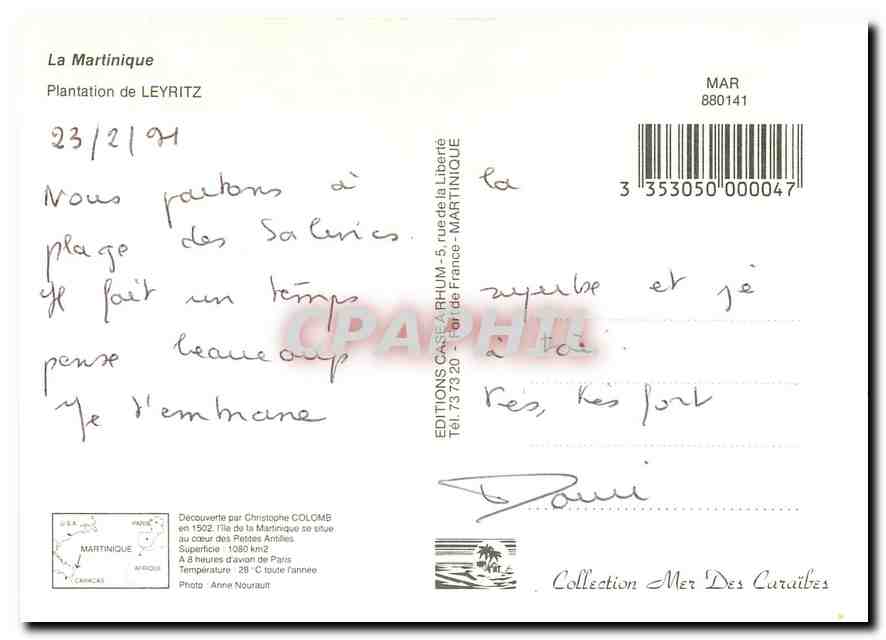 La Martinique
Plantation de LEYRITZ
MAR
880141
3 353050 000047
23/2/91
Nous partons à la
plage des Salines.
Il fait un temps superbe et je
pense beaucoup à toi.
Je t'embrasse très, très fort
Domi
EDITIONS CASE A RHUM - 5, rue de la Liberté
Tél. 73 73 20 - Fort de France - MARTINIQUE
CPAPHIL
U.S.A. PARIS
MARTINIQUE
AFRIQUE
CARACAS
Découverte par Christophe COLOMB
en 1502, l'île de la Martinique se situe
au cœur des Petites Antilles.
Superficie : 1080 km2
A 8 heures d'avion de Paris
Température : 28 °C toute l'année
Photo : Anne Nourault
Collection Mer Des Caraïbes